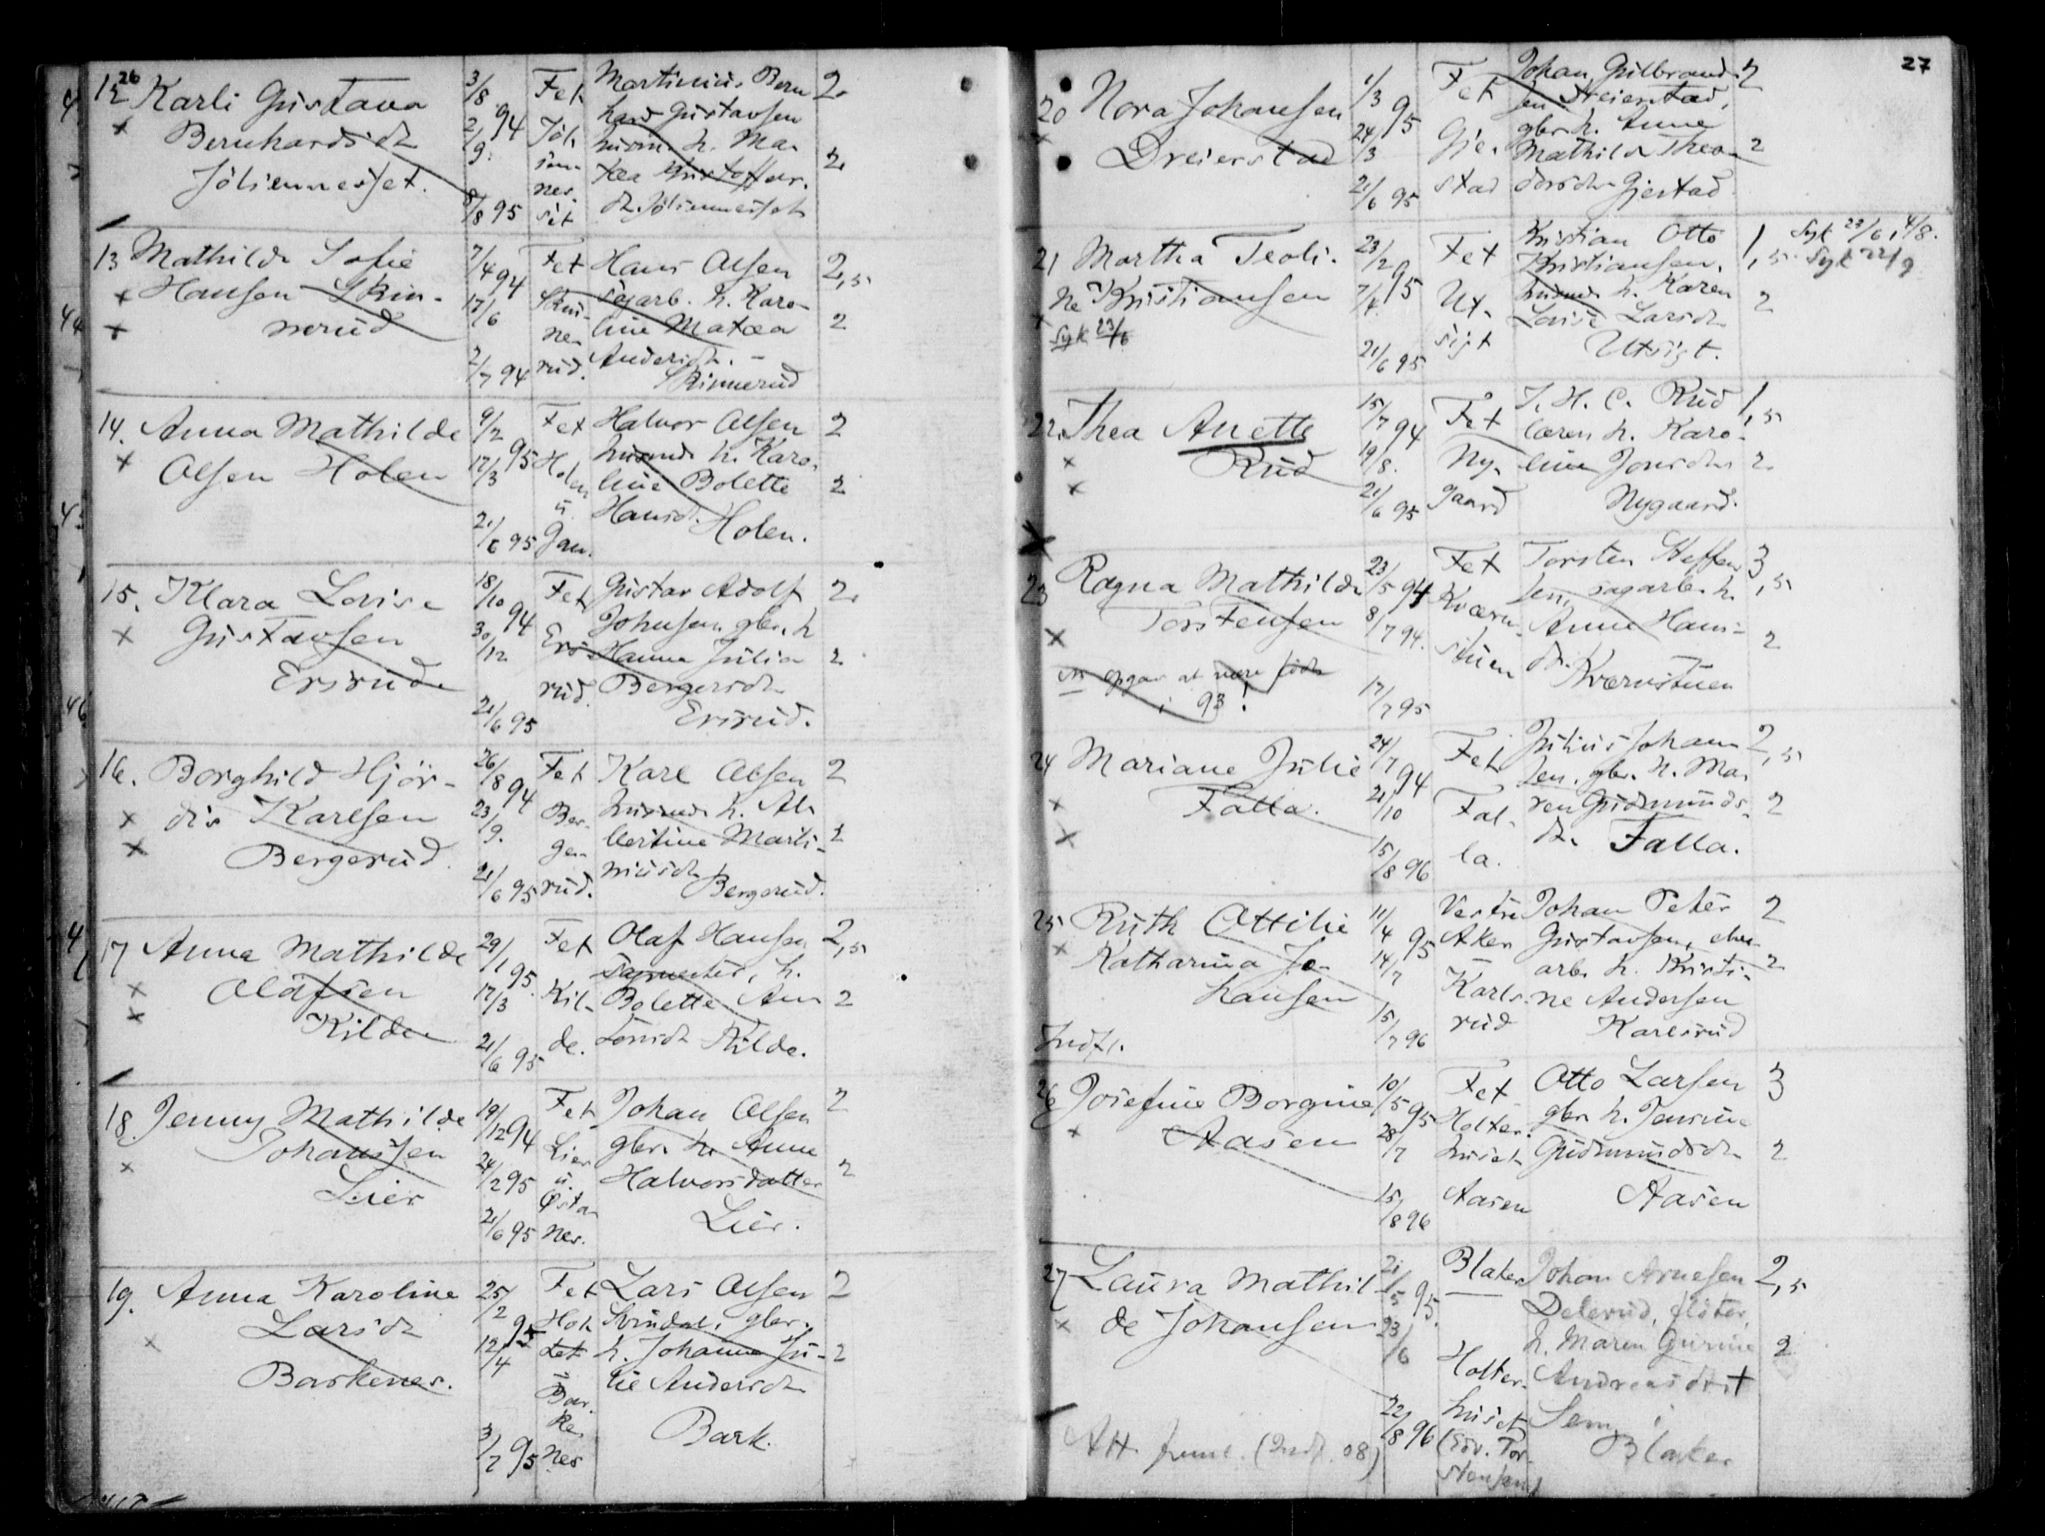 26
12 Karli Gustava
Bernhardsdt
Jölsennesset.
3/8 94
2/9
8/8 95
Fet
Martinius Bern
hard Gustavsen
husm. h. Ma-
tea
dt. Jölsennesset
2
2
13 Mathilde Sofie
Hansen Skin-
nerud
7/4 94
17/6
2/7 94
Fet
Skin-
ne-
rud.
Hans Olsen
sagarb. h. Karo-
line Matea
Andersdt. -
Skinnerud
2,5
2
14. Anna Mathilde
Olsen Holen
9/2 95
17/3
21/6 95
Fet
Holen
u.
Gan.
Halvor Olsen
husmd. h. Karo-
line Bolette
Hansdt. Holen.
2
2
15. Klara Lovise
Gustavsen
Ersrud.
18/10 94
30/12
21/6 95
Fet
Ers-
rud.
Gustav Adolf
Johnsen, gbr. h
Hanna Julia
Bergersdt
Ersrud.
2
2
16. Borghild Hjör-
dis Karlsen
Bergerud
26/8 94
23/9.
21/6 95
Fet
Ber-
ge-
rud.
Karl Olsen
husmd. h. Al-
bertine Marti-
niusdt
Bergerud.
2
2
17 Anna Mathilde
Olafsen
Kilde
29/1 95.
17/3
21/6 95
Fet
Kil-
de.
Olaf Hansen
sagmester, h.
Bolette An-
tonsdt Kilde.
2,5
2
18. Jenny Mathilde
Johansen
Lier
19/12 94
24/2 95
21/6 95
Fet
Lier
u.
Østa-
nes.
Johan Olsen
gbr. h. Anne
Halvorsdatter
Lier.
2
2
19. Anna Karoline
Larsdt
Barkenes.
25/2 95
12/4
3/7 95
Fet
Hol
tet
Bar-
ke-
nes
Lars Olsen
Svindal, gbr.
h. Johanne Ju-
lie Andersdt
Bark.
2
2
27
20 Nora Johansen
Dreierstad
1/3 95
24/3
21/6 95
Fet
Gje-
stad
Johan Gulbrand-
sen Dreierstad,
gbr. h. Anne
Mathilde Theo-
dorsdt. Gjestad
2
2
21 Martha Teoli-
ne Kristiansen
Syk 23/6
23/2 95
7/4
21/6 95
Fet
Ut-
sigt
Kristian Otto
Kristiansen,
husmd. h. Karen
Lovise Larsdt
Utsigt.
1,5
2
Syk 23/6, 4/8.
Syk 22/9
22. Thea Anette
Rud
15/7 94
19/8.
21/6 95
Fet
Ny-
gaard
J. H. C. Rud
lærer h. Karo-
line Jonsdt.
Nygaard.
1,5
2
23 Ragna Mathilde
Torstensen
opgav at være født
i 93!
23/5 94
8/7 94.
17/7 95
Fet
Kværn-
stuen
Torsten Steffen-
sen, sagarb. h.
Anne Hans-
dt.
Kværnstuen
3,5
2
24 Mariane Julie
Falla.
24/7 94
21/10
15/8 96
Fet
Fal-
la.
Julius Johan-
sen. gbr. h. Ma-
ren Gudmunds-
dt. Falla.
2,5
2
25 Ruth Ottilie
Katharina Jo-
hansen
Indfl.
11/4 95
14/7
15/7 96
Vestre
Aker
Karls-
rud
Johan Peter
Gustavsen,
arb. h. Kristi-
ne Andersen
Karlsrud
2
2
26 Josefine Borgine
Aasen
10/5 95
28/7
15/8 96
Fet
Holter-
huset
Aasen
Otto Larsen
gbr. h. Jensine
Gudmundsdt
Aasen
3
2
27 Laura Mathil
de Johansen
Att. (Indf. 08)
21/5 95.
23/6
22/8 96
Blaker
Holter-
huset
(Edv. Tor-
stensen)
Johan Arnesen
Delerud, fløter,
h. Maren Gurine
Andreasdt. †
Sem i
Blaker
2,5
2